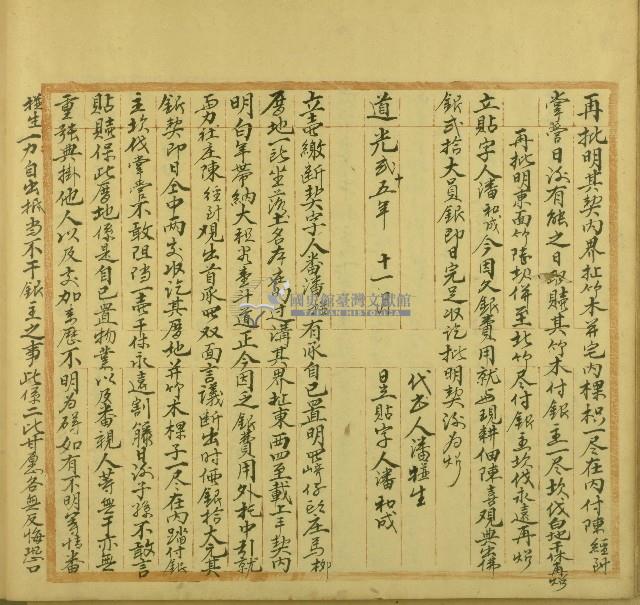 再批明其契內界址竹木并宅內棵枳一尽在內付陳經討
掌管日後有能之日取贖其竹木付銀主一尽坎伐白地干保再炤
再批明東面竹隊坎併至北竹尽付銀主坎伐永遠再炤
立貼字人潘和成今因久銀費用就與現耕佃陳喜观典出佛
銀貳拾大員銀即日完足收訖批明契後為炤
代书人潘種生
道光貳十五年 十一月 日立貼字人潘和成
立壹繳斷契字人番潘 有承自己置明 仔 庄馬柳
厝地一所坐落土名本庄 溝其界址東西四至載上手契內
明白年帶納大租 壹斗道正今因乏銀費用外托中引就
西力社庄陳經討观出首承 双面言議斷出時價銀拾大元其
銀契即日仝中兩交收訖其厝地并竹木棵子一尽在內踏付銀
主坎伐掌管不敢阻擋一壹千保永遠割籐日後子孫不敢言
貼贖保此厝地係是自己置物業以及番親人等無干亦無
重張典掛他人以及交加來歷不明為碍如有不明等情番
種生一力自出抵当不干銀主之事此係二比甘愿各無反悔恐口
國史館臺灣文獻館
TAIWAN HISTORICA